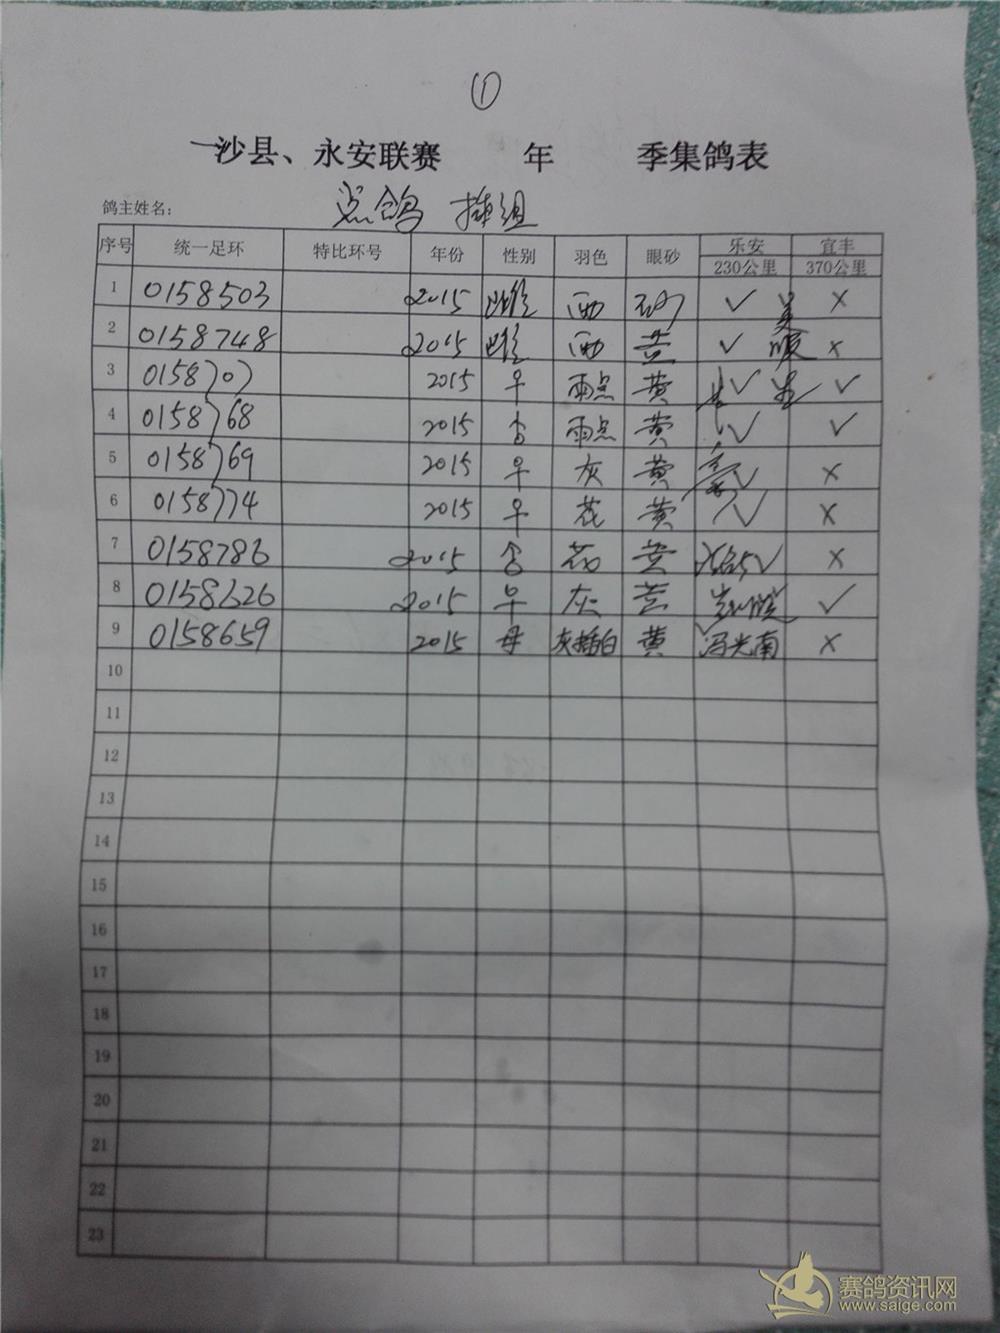 ①
沙县、永安联赛 年 季集鸽表
鸽主姓名： 点鸽 组
序号 统一足环 特比环号 年份 性别 羽色 眼砂 乐安 宜丰
230公里 370公里
1 0158503 2015 雌 西 砂 ✓ 美 ×
2 0158748 2015 雌 西 黄 ✓ 顺 ×
3 0158707 2015 ♀ 雨点 黄 ✓ ✓
4 0158768 2015 雨点 黄 ✓ ✓
5 0158769 2015 ♀ 灰 黄 ✓ ×
6 0158774 2015 ♀ 花 黄 ✓ ×
7 0158786 2015 花 黄 ✓ ×
8 0158626 2015 ♀ 灰 黄 ✓
9 0158659 2015 母 灰插白 黄 冯光南 ×
10
11
12
13
14
15
16
17
18
19
20
21
22
23
赛鸽资讯网
www.saige.com